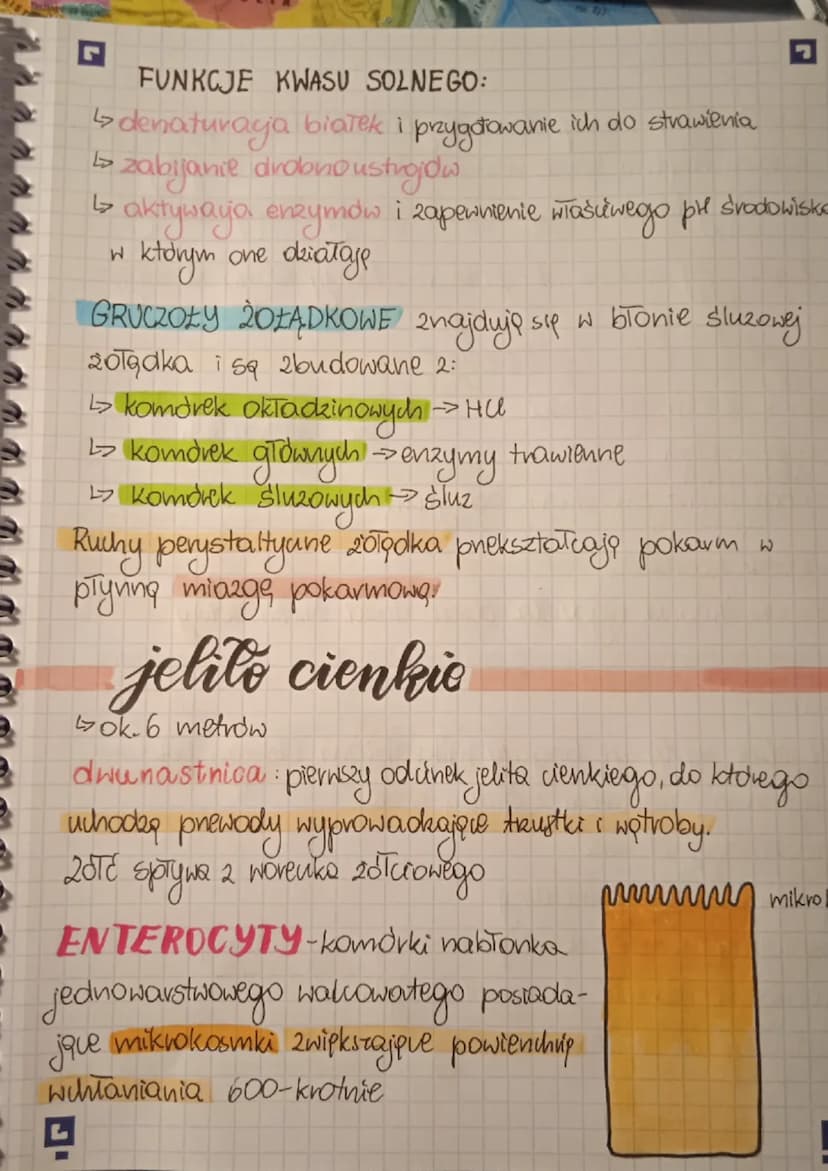 FUNKCJE KWASU SOLNEGO:
↳ denaturacja białek i przygotowanie ich do strawienia
↳ zabijanie drobnoustrojów
↳ aktywacja enzymów i zapewnienie właściwego pH środowiska
w którym one działają
GRUCZOŁY ŻOŁĄDKOWE znajdują się w błonie śluzowej
żołądka i są zbudowane z:
↳ komórek okładzinowych → HCl
↳ komórek głównych → enzymy trawienne
↳ komórek śluzowych → śluz
Ruchy perystaltyczne żołądka przekształcają pokarm w
płynną miazgę pokarmową.
jelito cienkie
↳ ok. 6 metrów
dwunastnica: pierwszy odcinek jelita cienkiego, do którego
uchodzą przewody wyprowadzające trzustki i wątroby.
Żółć spływa z woreczka żółciowego
mikro
ENTEROCYTY - komórki nabłonka
jednowarstwowego walcowatego posiada-
jące mikrokosmki zwiększające powierzchnię
wchłaniania 600-krotnie